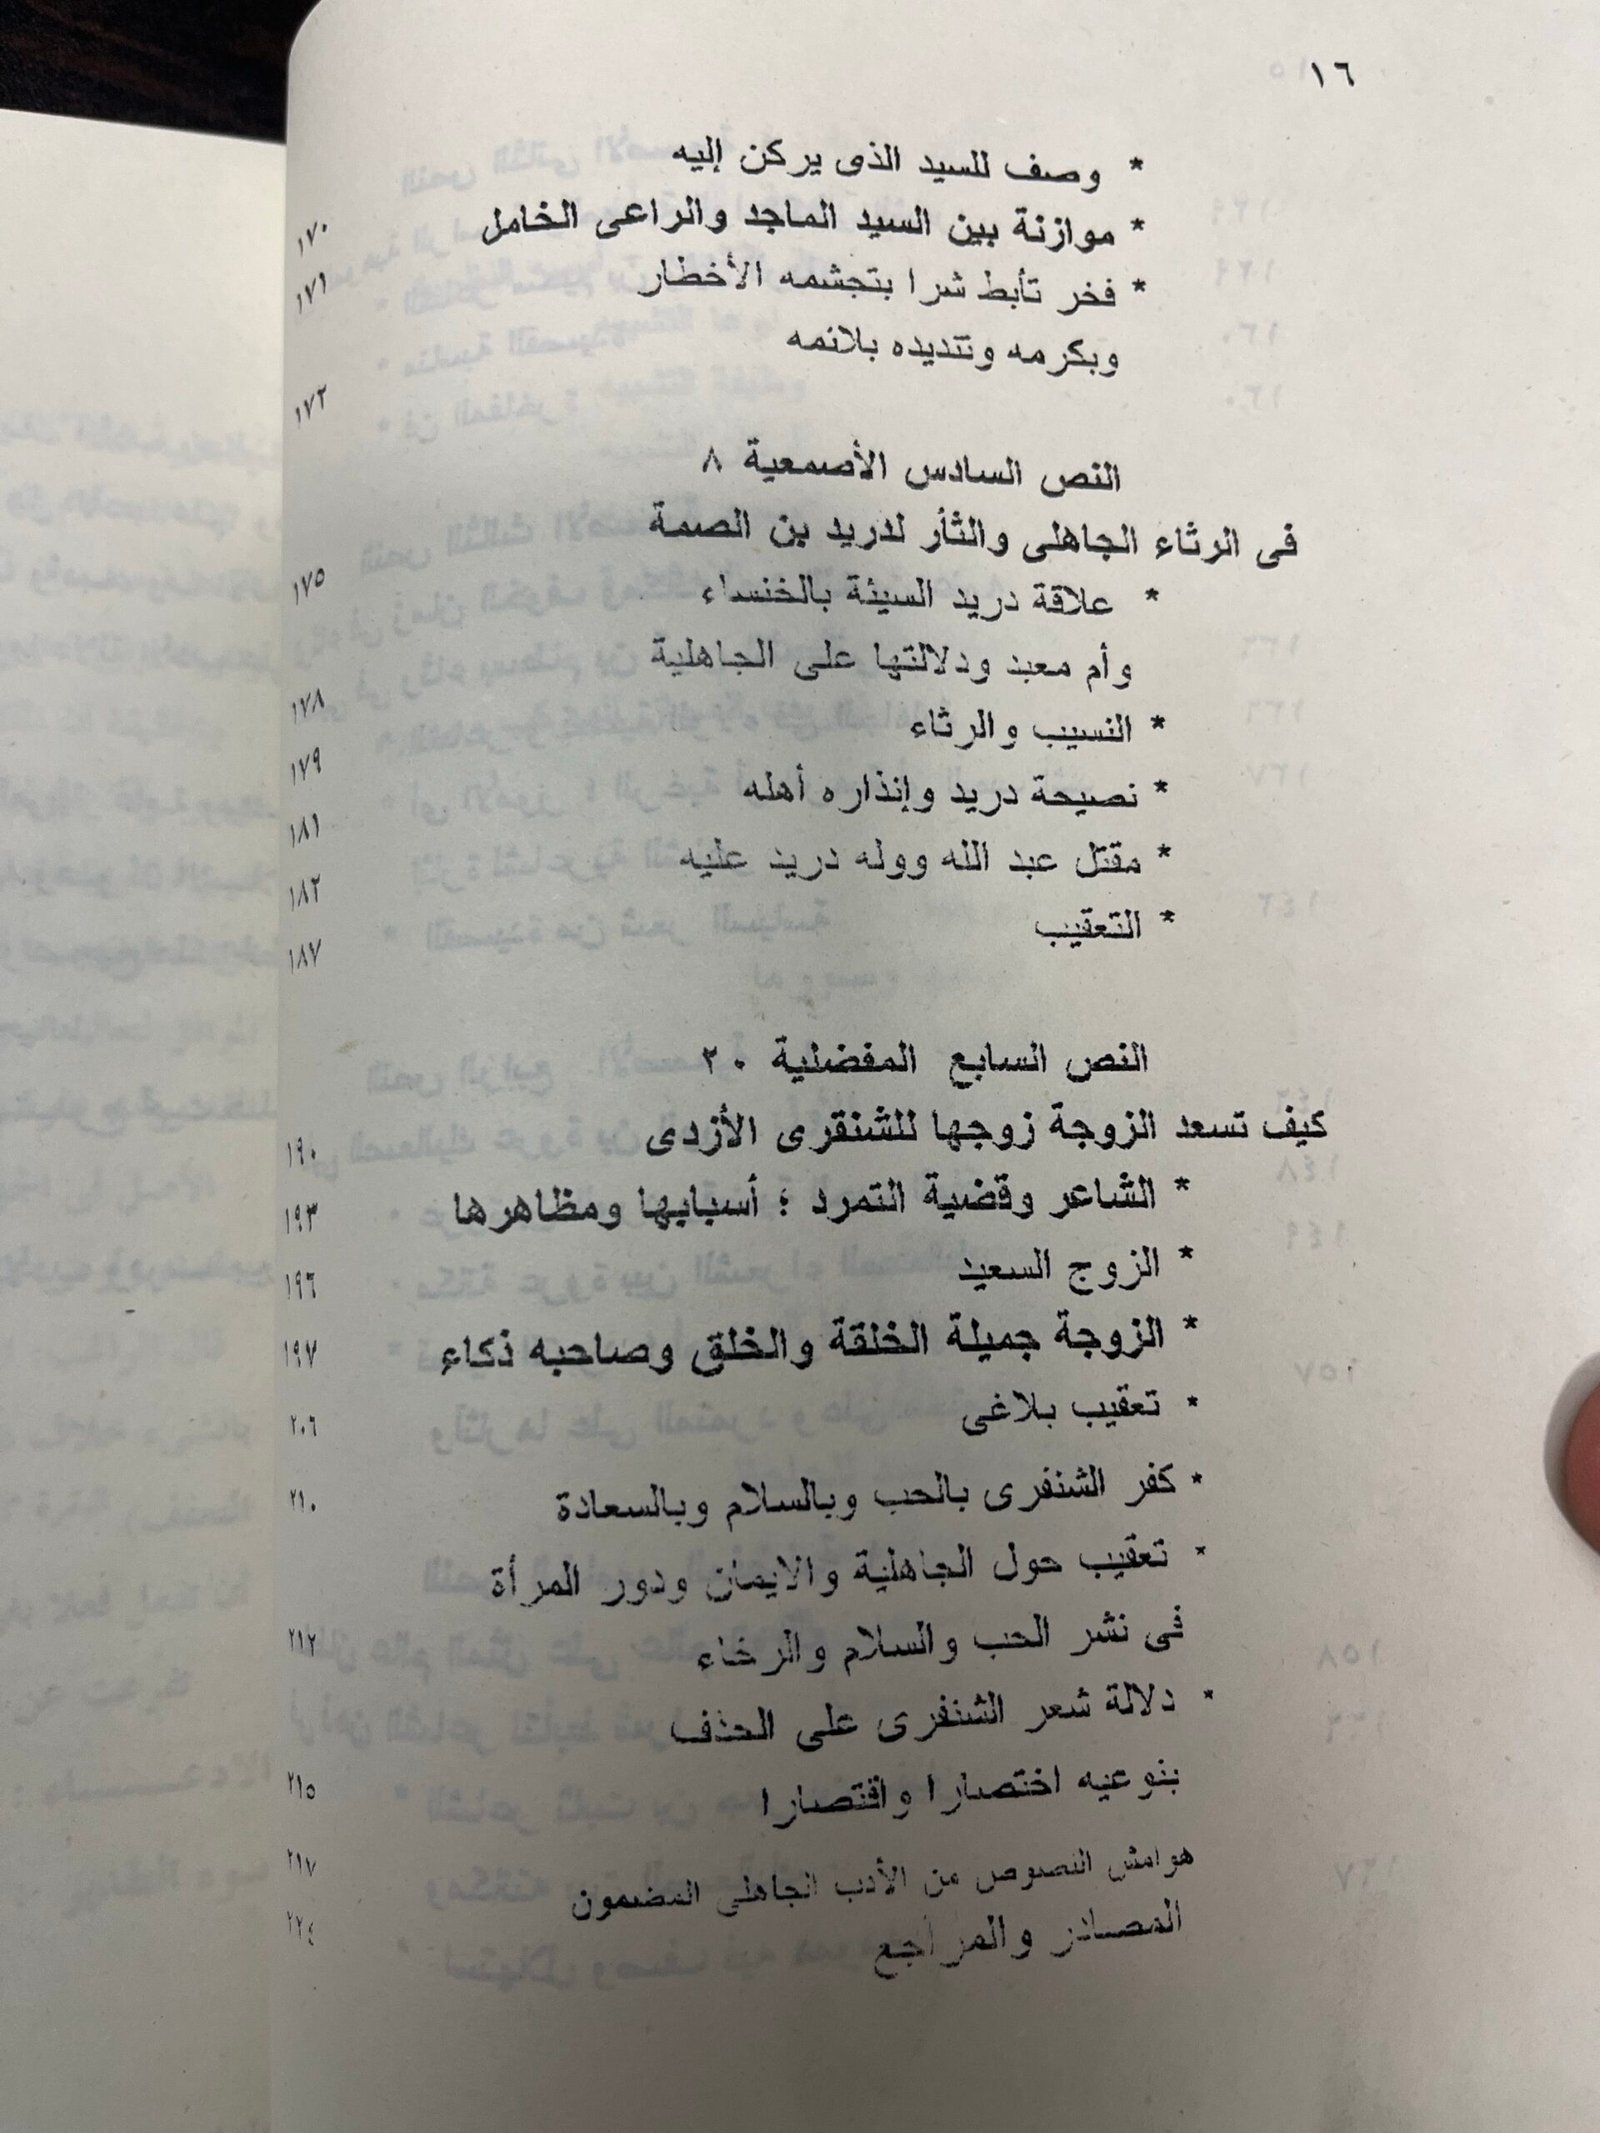 ١٦
* وصف للسيد الذى يركن إليه ١٧٠
* موازنة بين السيد الماجد والراعى الخامل ١٧١
* فخر تأبط شرا بتجشمه الأخطار
وبكرمه وتنديده بلائمه ١٧٢
النص السادس الأصمعية ٨
فى الرثاء الجاهلى والثأر لدريد بن الصمة ١٧٥
* علاقة دريد السيئة بالخنساء
وأم معبد ودلالتها على الجاهلية ١٧٨
* النسيب والرثاء ١٧٩
* نصيحة دريد وإنذاره أهله ١٨١
* مقتل عبد الله ووله دريد عليه ١٨٢
* التعقيب ١٨٧
النص السابع المفضلية ٢٠
كيف تسعد الزوجة زوجها للشنقرى الأزدى ١٩٠
* الشاعر وقضية التمرد ؛ أسبابها ومظاهرها ١٩٣
* الزوج السعيد ١٩٦
* الزوجة جميلة الخلقة والخلق وصاحبه ذكاء ١٩٧
* تعقيب بلاغى ٢٠٦
* كفر الشنفرى بالحب وبالسلام وبالسعادة ٢١٠
* تعقيب حول الجاهلية والايمان ودور المرأة
فى نشر الحب والسلام والرخاء ٢١٢
* دلالة شعر الشنفرى على الحذف
بنوعيه اختصارا واقتصارا ٢١٥
هوامش النصوص من الأدب الجاهلى المضمون ٢١٧
المصادر والمراجع ٢٢٤